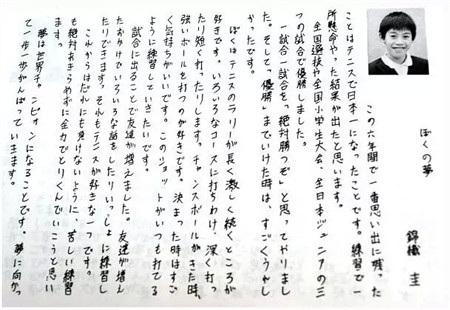 ぼくの夢
錦織 圭
この六年間で一番思い出に残った
ことはテニスで日本一になったことです。練習で一
所懸命やった結果が出たと思います。
全国選抜や全国小学生大会、全日本ジュニアの三
つの試合で優勝しました。
一試合一試合を、「絶対勝つぞ」と思ってやりまし
た。そして、優勝までいけた時は、すごくうれし
かったです。
ぼくはテニスのラリーが長く激しく続くところが
好きです。いろいろなコースに打ちわけ、深く打っ
たり短く打ったりします。チャンスボールがきた時、
強いボールを打つのが好きです。決まった時はすご
く気持ちがいいです。このショットがいつも打てる
ように練習していきたいです。
試合に出ることで友達が増えました。友達が増え
たおかげでいろいろな話をしたりいっしょに練習し
たりできます。それもテニスが好きな一つです。
これからはだれにも負けないように、苦しい練習
も絶対あきらめずに全力でとりくんでいこうと思い
ます。
夢は世界チャンピオンになることです。夢に向かっ
て一歩一歩がんばっていきます。